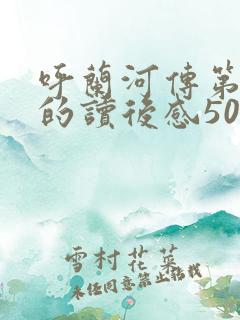 呼蘭河傳第
的讀後感50
雪村花菜
未經同意禁止搭載